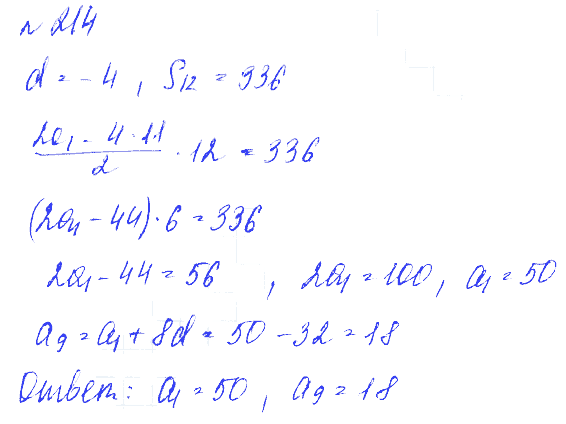 № 214
d = -4 , S₁₂ = 336
(2a₁ - 4 · 11)/2 · 12 = 336
(2a₁ - 44) · 6 = 336
2a₁ - 44 = 56 , 2a₁ = 100 , a₁ = 50
a₉ = a₁ + 8d = 50 - 32 = 18
Ответ: a₁ = 50 , a₉ = 18